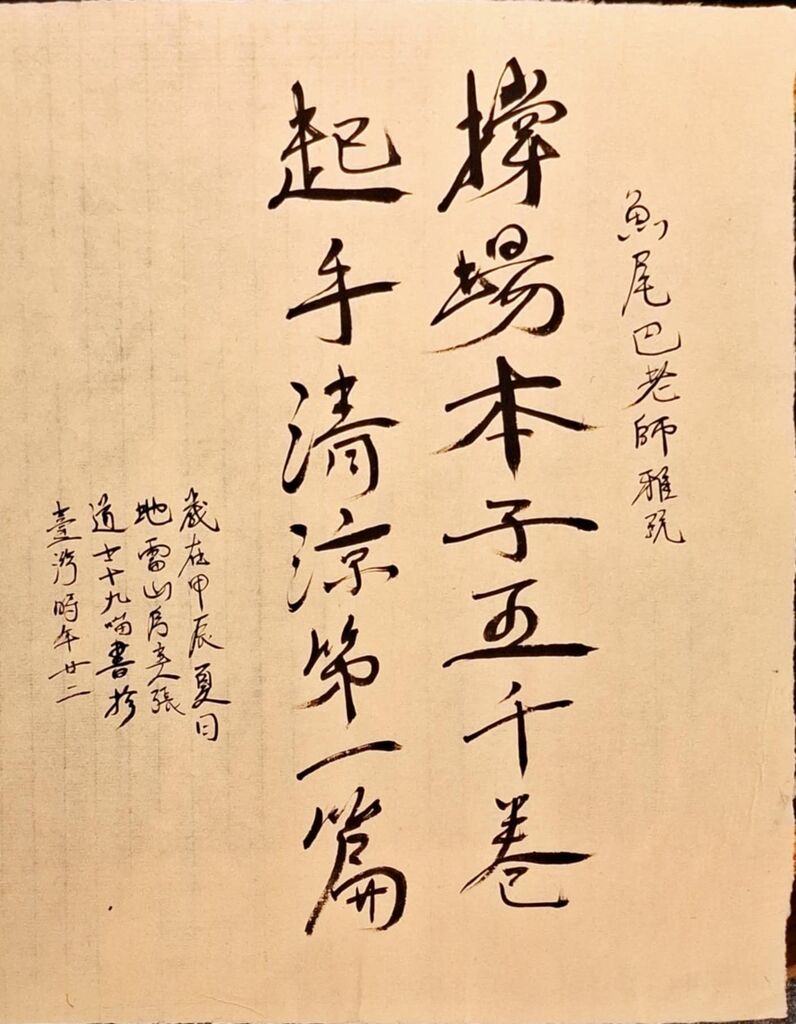 魚尾巴老師雅玩
撑場本子五千卷
起手清涼第一篇
歲在甲辰夏日
地雷山房主人張
道士十九喵書於
臺灣時年廿二